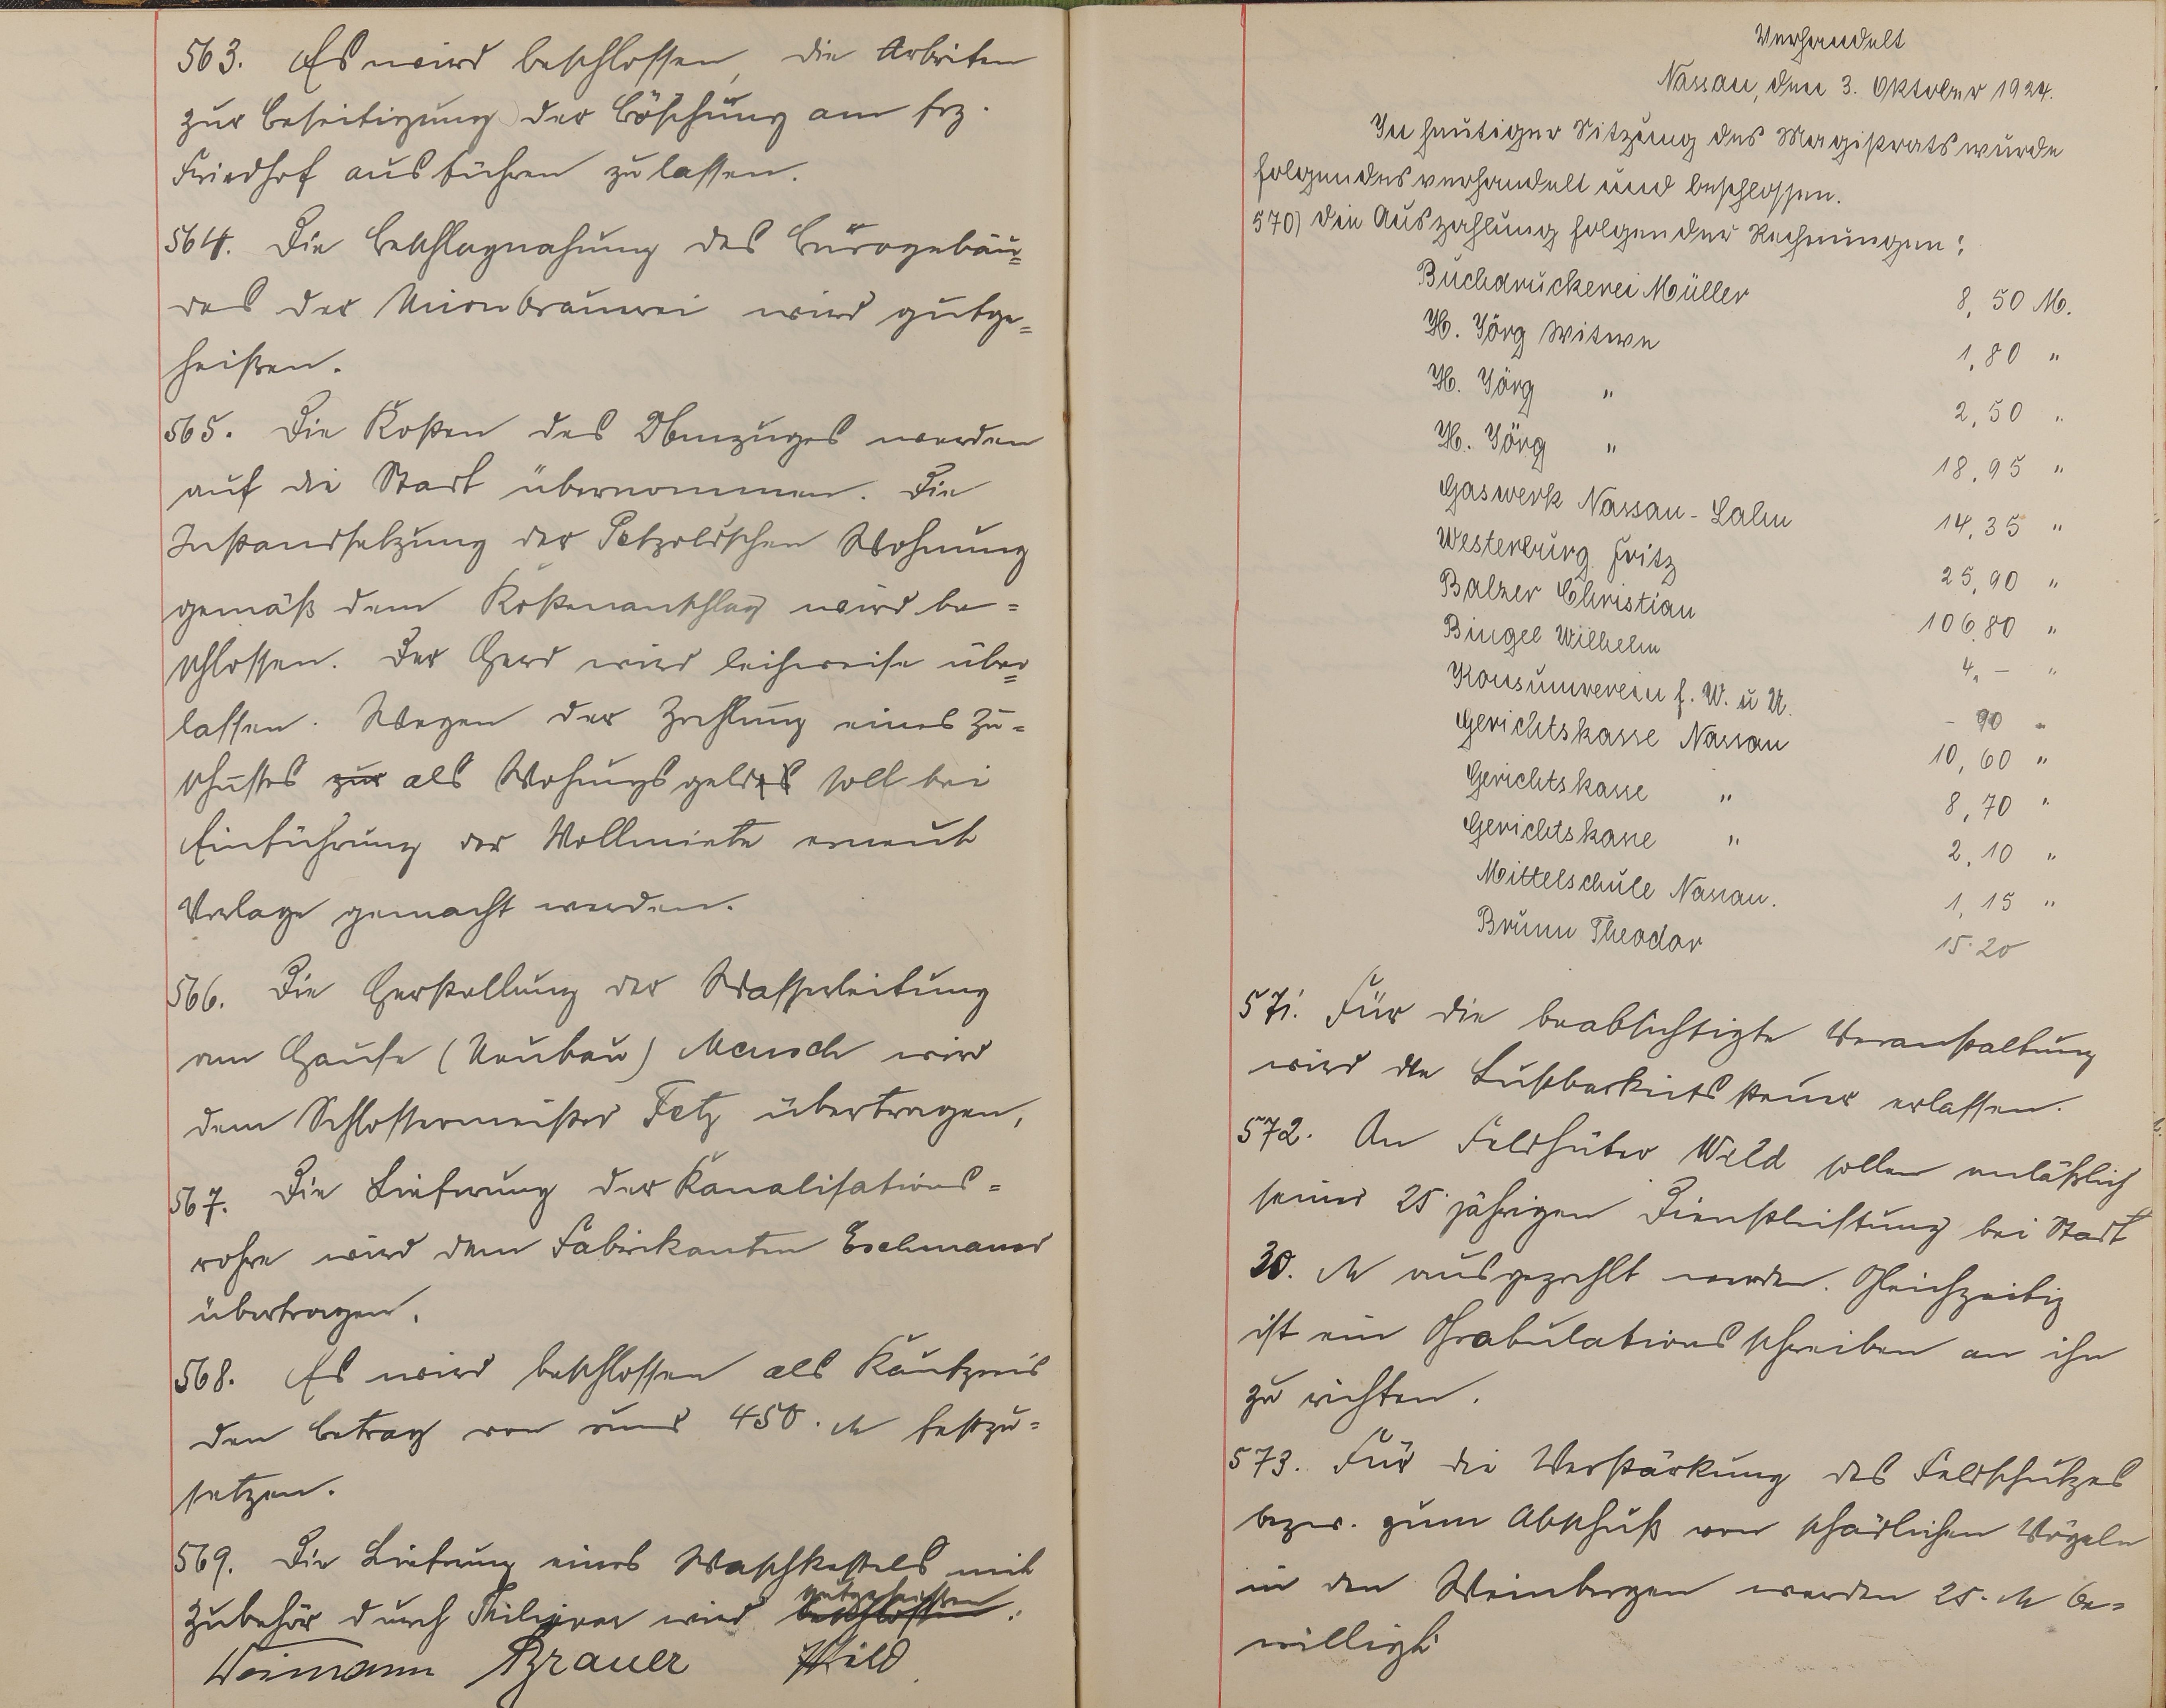 563. Es wird beschlossen, die Arbeiten
zur Beseitigung der Böschung am frz.
Friedhof ausführen zu lassen.
564. Die Beschlagnahmung des Bürogebäu-
des der Unionbrauerei wird gutge-
heißen.
565. Die Kosten des Umzuges werden
auf die Stadt übernommen. Die
Instandsetzung der Petzoldschen Wohnung
gemäß dem Kostenanschlag wird be-
schlossen. Der Herd wird leihweise über-
lassen. Wegen der Zahlung eines Zu-
schusses zur als Wohnungsgeldes soll bei
Einführung der Vollmiete erneut
Vorlage gemacht werden.
566. Die Herstellung der Wasserleitung
am Hause (Neubau) Mensch wird
dem Schlossermeister Fetz übertragen,
567. Die Lieferung der Kanalisations-
rohre wird dem Fabrikanten Eschmann
übertragen.
568. Es wird beschlossen als Kaufpreis
den Betrag von rund 450. M festzu-
setzen.
569. Die Lieferung eines Waschkessels mit
gutgeheißen
Zubehör durch wird beschlossen.
Weimann Brauer Wild
Verhandelt
Nassau, den 3. Oktober 1924.
In heutiger Sitzung des Magistrats wurde
folgendes verhandelt und beschlossen.
570) die Auszahlung folgender Rechnungen:
Buchdruckerei Müller 8,50 M.
H. Jörg Witwe 1,80 "
H. Jörg " 2,50 "
H. Jörg " 18,95 "
Gaswerk Nassau-Lahn 14,35 "
Westerburg Fritz 25,90 "
Balzer Christian 106,80 "
Bingel Wilhelm 4,- "
Konsumverein f. W. u U. - 90 "
Gerichtskasse Nassau 10,60 "
Gerichtskasse " 8,70 "
Gerichtskasse " 2,10 "
Mittelschule Nassau. 1,15 "
Brunn Theodor 15.20
571. Für die beabsichtigte Veranstaltung
wird die Lustbarkeitssteuer erlassen.
572. An Feldhüter Wild sollen anläßlich
seiner 25 jährigen Dienstleistung bei Stadt
30. M ausgezahlt werden. Gleichzeitig
ist ein Gratulationsschreiben an ihn
zu richten.
573. Für die Verstärkung des Feldschutzes
bezw. zum Abschuß von schädlichen Vögeln
in den Weinbergen werden 25. M be-
willigt.